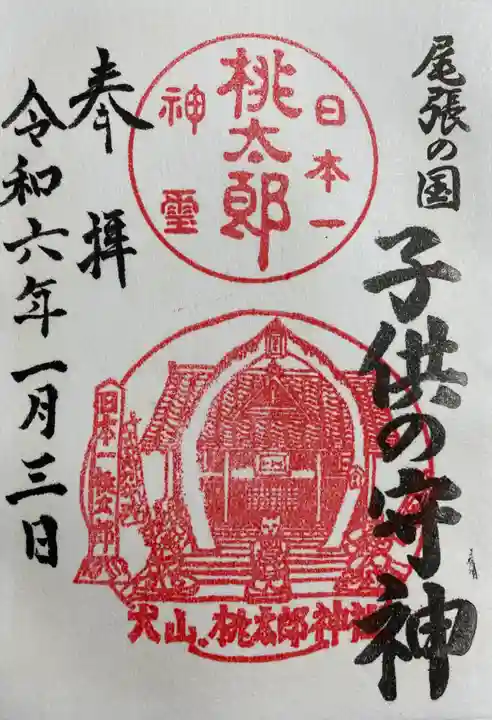 尾張の国
子供の守神
日本一
桃太郎
神霊
日本一桃太郎
犬山.桃太郎神社
奉拝
令和六年一月三日